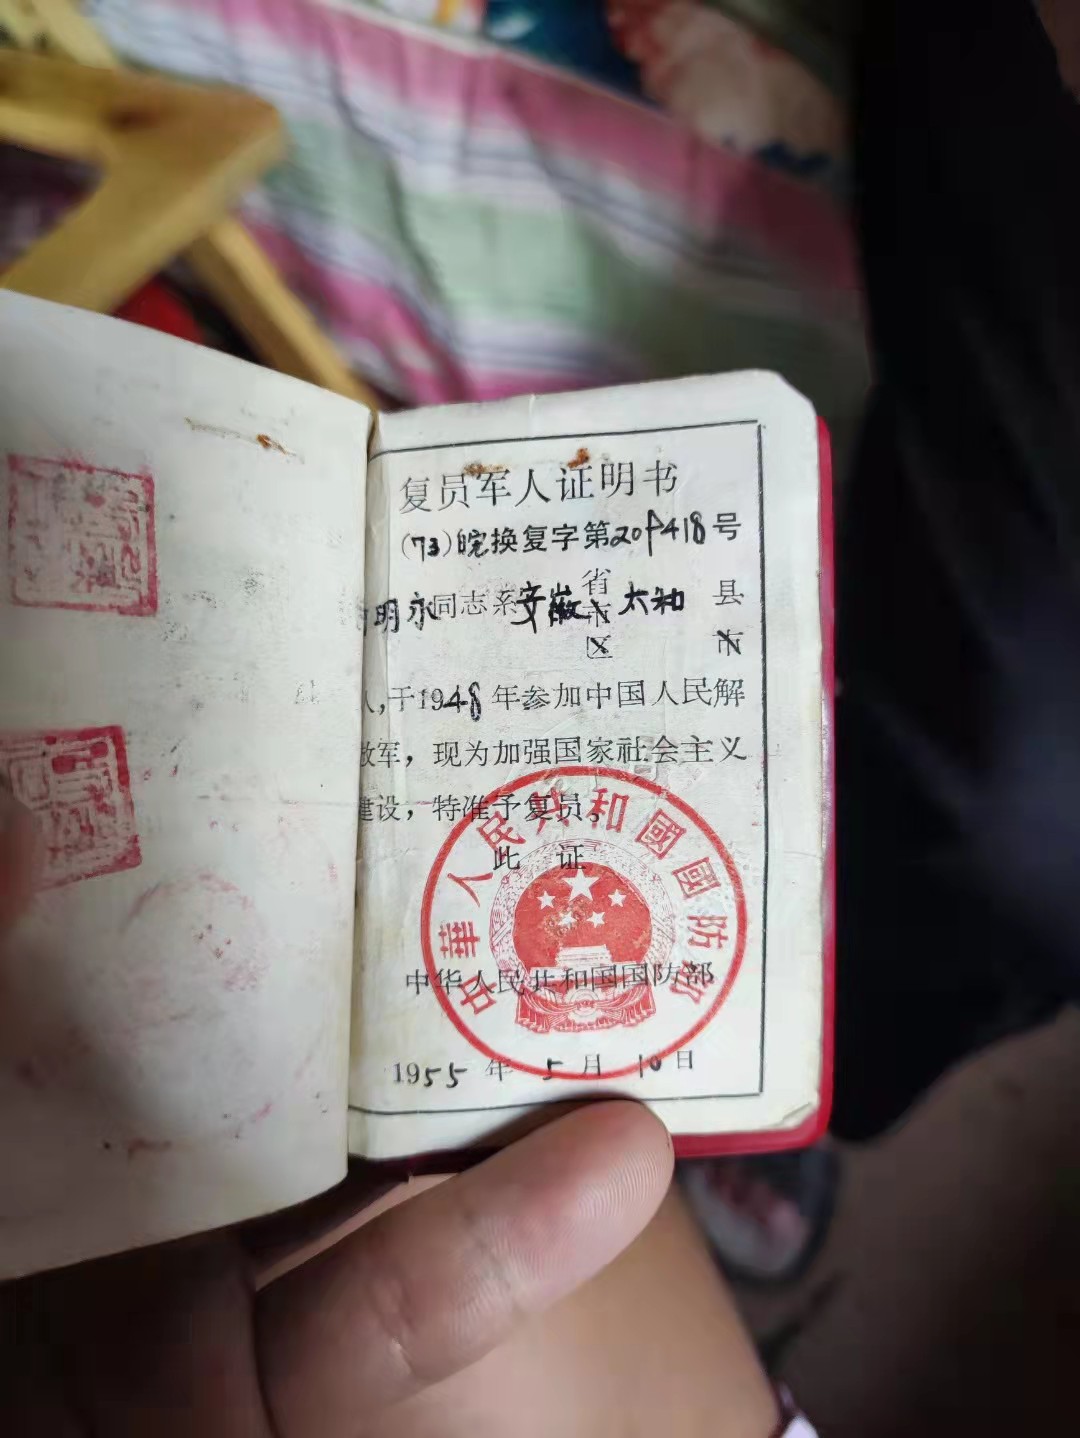 复员军人证明书
(73)皖换复字第209418号
明永同志系安徽省市区太和县市
人,于1948年参加中国人民解
放军,现为加强国家社会主义
建设,特准予复员。
此 证
中华人民共和国国防部
中華人民共和國國防部
1955年5月10日